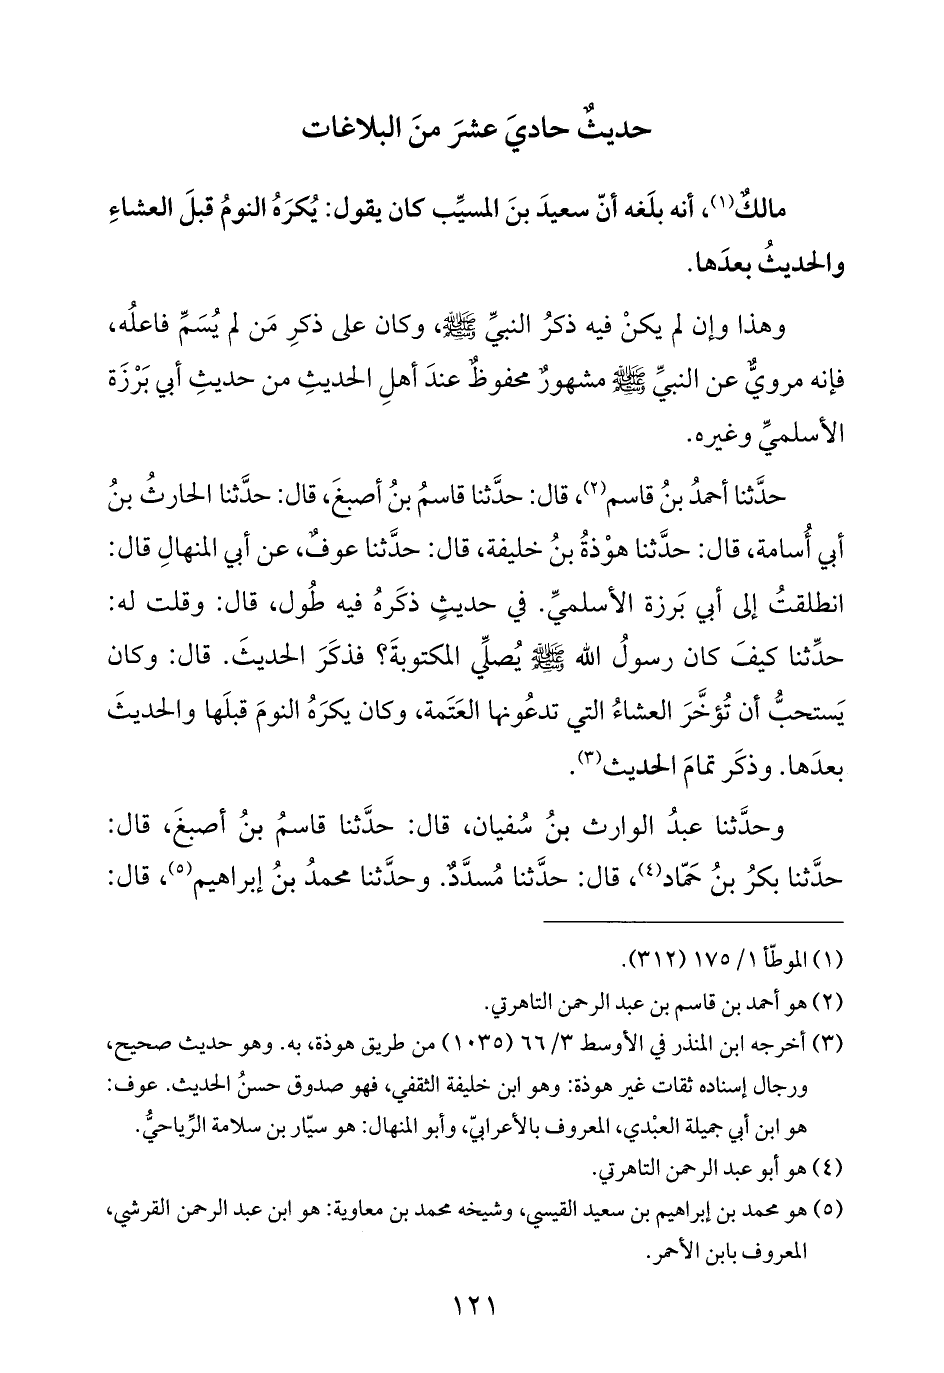 حديثٌ حاديَ عشرَ منَ البلاغات
مالكٌ(١)، أنه بلَغه أنّ سعيدَ بنَ المسيِّب كان يقول: يُكرَهُ النومُ قبلَ العشاءِ
والحديثُ بعدَها.
وهذا وإن لم يكنْ فيه ذكرُ النبيِّ ﷺ، وكان على ذكرِ مَن لم يُسَمِّ فاعلُه،
فإنه مرويٌّ عن النبيِّ ﷺ مشهورٌ محفوظٌ عندَ أهلِ الحديثِ من حديثِ أبي بَرْزَة
الأسلميِّ وغيره.
حدَّثنا أحمدُ بنُ قاسم(٢)، قال: حدَّثنا قاسمُ بنُ أصبغَ، قال: حدَّثنا الحارثُ بنُ
أبي أُسامة، قال: حدَّثنا هوْذةُ بنُ خليفة، قال: حدَّثنا عوفٌ، عن أبي المنهالِ قال:
انطلقتُ إلى أبي بَرزة الأسلميِّ. في حديثٍ ذكَرهُ فيه طُول، قال: وقلت له:
حدِّثنا كيفَ كان رسولُ الله ﷺ يُصلِّي المكتوبةَ؟ فذكَرَ الحديثَ. قال: وكان
يَستحبُّ أن تُؤخَّرَ العشاءُ التي تدعُونها العَتَمة، وكان يكرَهُ النومَ قبلَها والحديثَ
بعدَها. وذكَر تمامَ الحديث(٣).
وحدَّثنا عبدُ الوارث بنُ سُفيان، قال: حدَّثنا قاسمُ بنُ أصبغَ، قال:
حدَّثنا بكرُ بنُ حمّاد(٤)، قال: حدَّثنا مُسدَّدٌ. وحدَّثنا محمدُ بنُ إبراهيم(٥)، قال:
(١) الموطّأ ١/ ١٧٥ (٣١٢).
(٢) هو أحمد بن قاسم بن عبد الرحمن التاهرتي.
(٣) أخرجه ابن المنذر في الأوسط ٣/ ٦٦ (١٠٣٥) من طريق هوذة، به. وهو حديث صحيح،
ورجال إسناده ثقات غير هوذة: وهو ابن خليفة الثقفي، فهو صدوق حسنُ الحديث. عوف:
هو ابن أبي جميلة العبْدي، المعروف بالأعرابيّ، وأبو المنهال: هو سيّار بن سلامة الرِّياحيُّ.
(٤) هو أبو عبد الرحمن التاهرتي.
(٥) هو محمد بن إبراهيم بن سعيد القيسي، وشيخه محمد بن معاوية: هو ابن عبد الرحمن القرشي،
المعروف بابن الأحمر.
١٢١